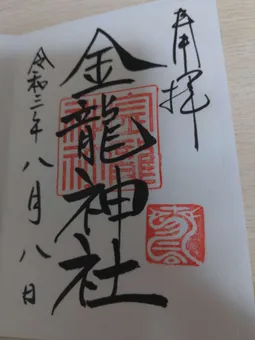 奉拝
金龍神社
令和三年八月八日